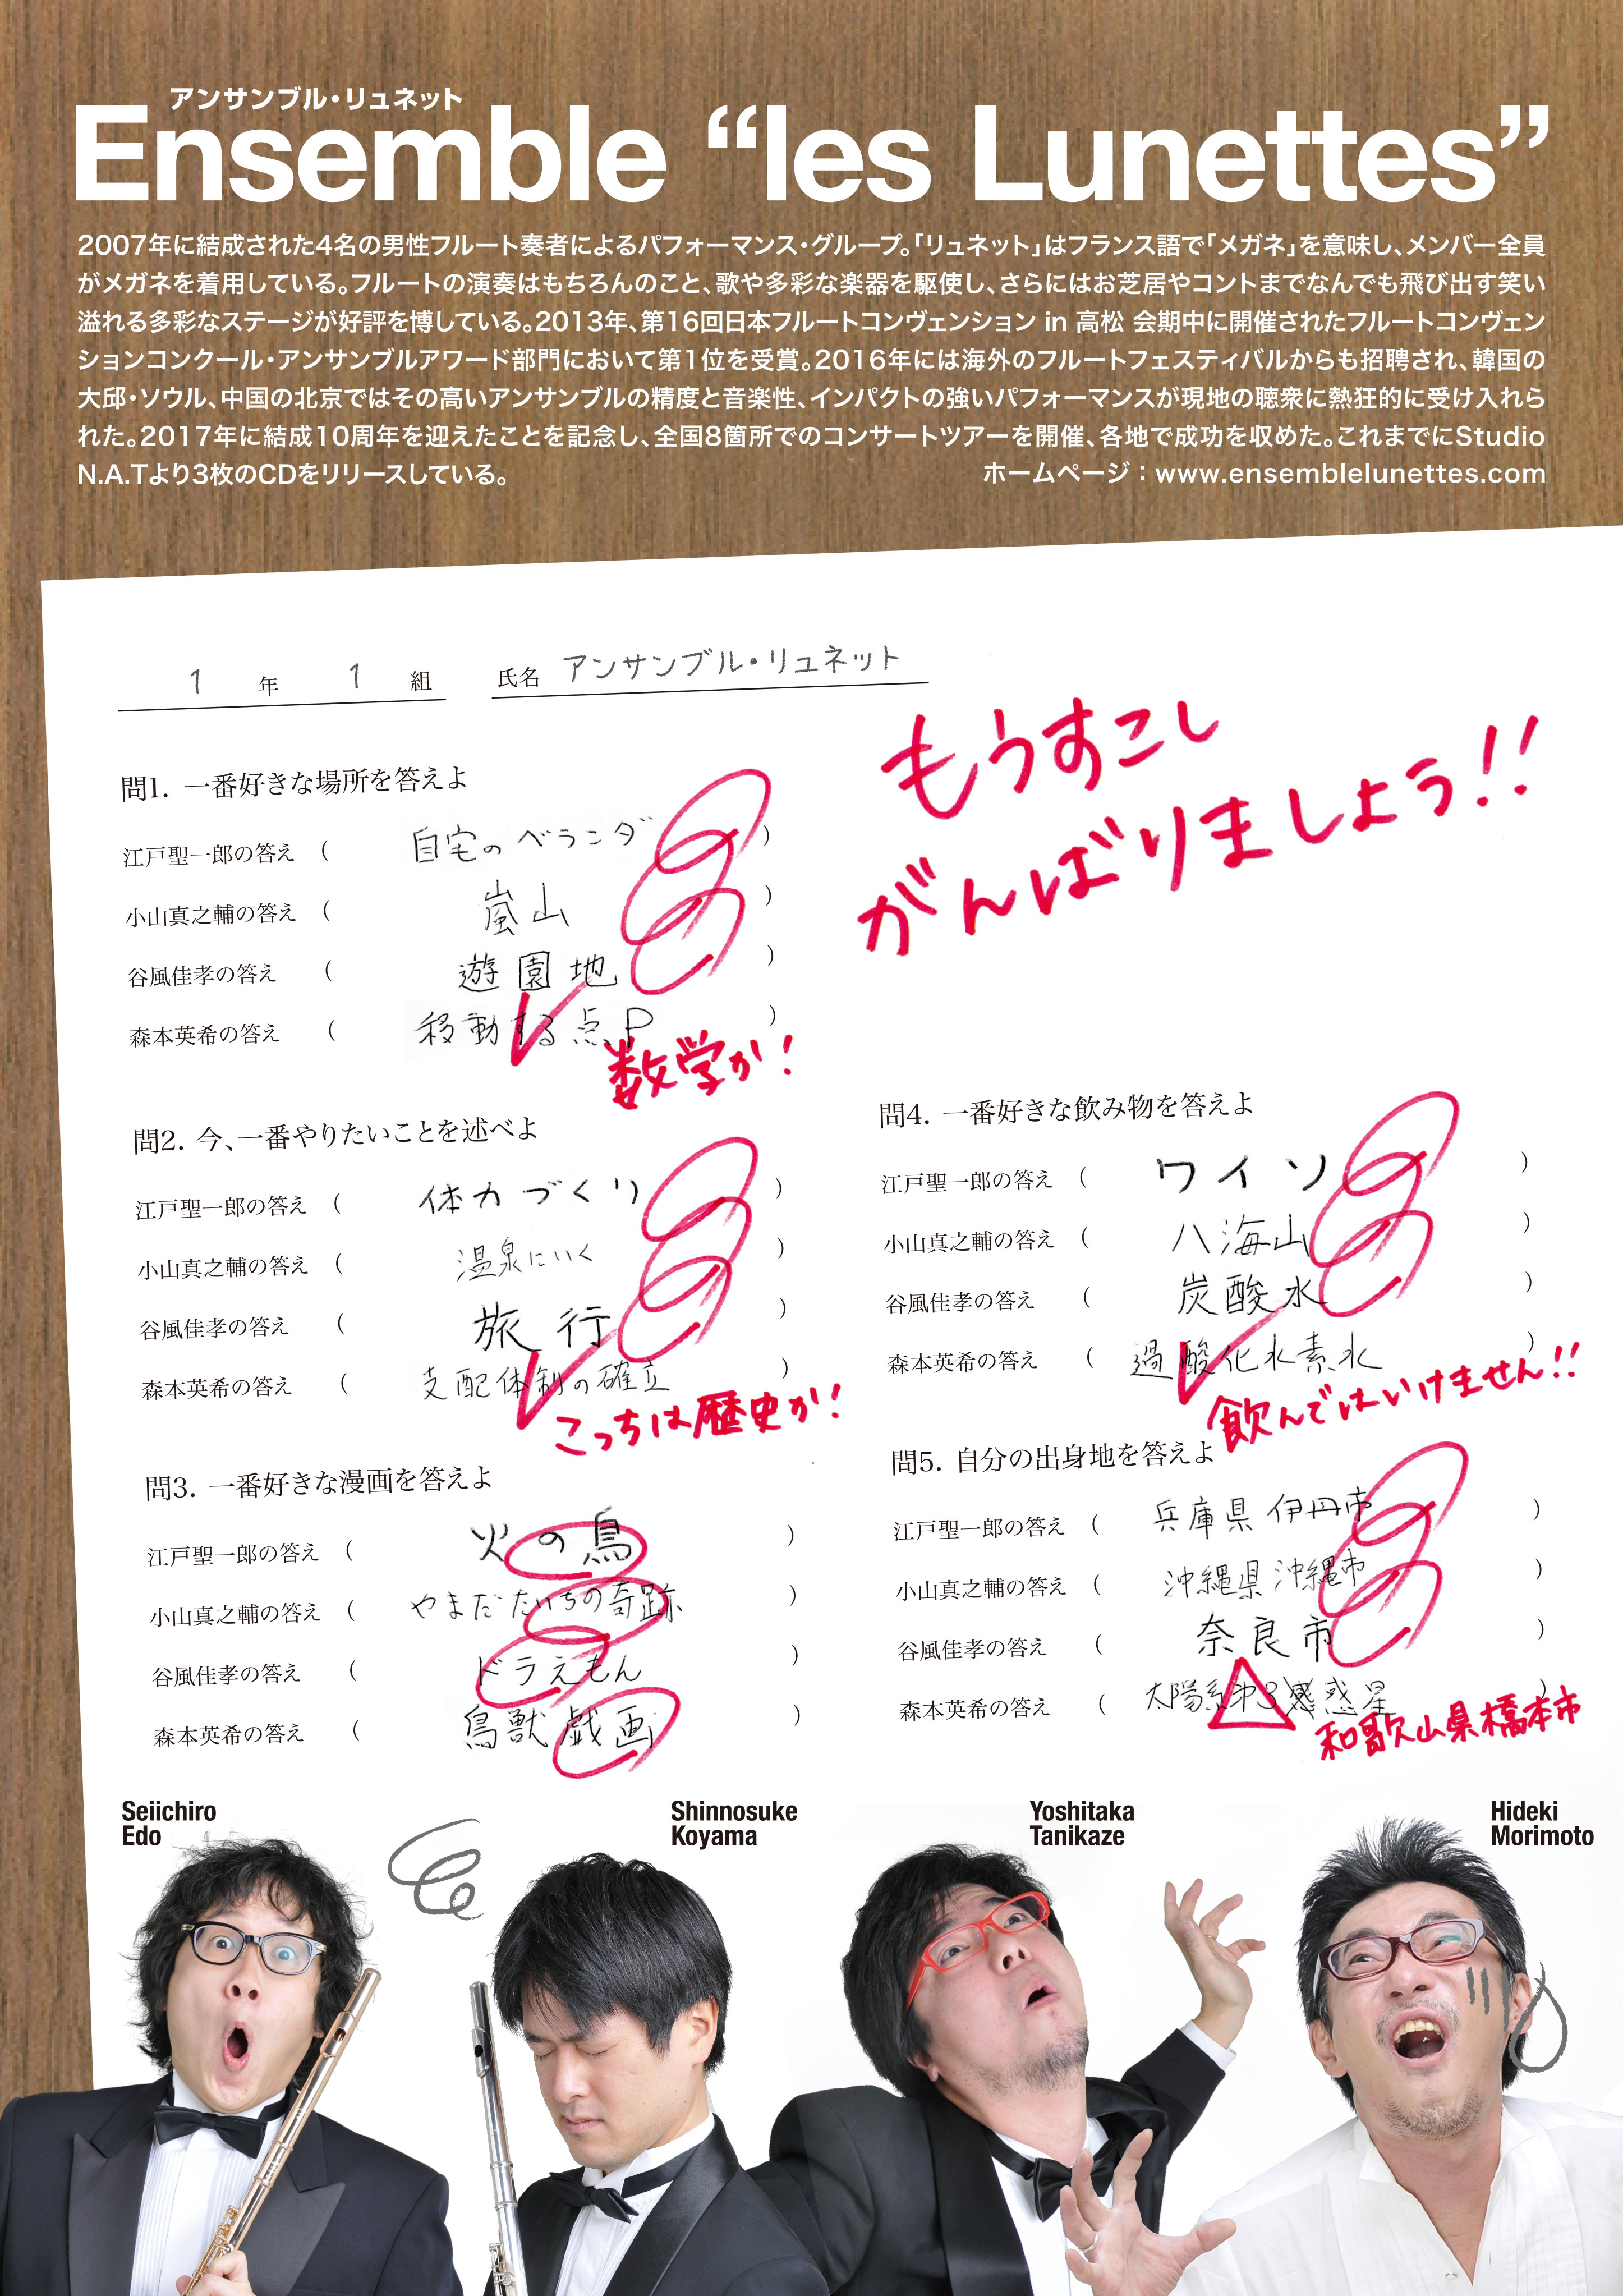 アンサンブル・リュネット
Ensemble “les Lunettes”
2007年に結成された4名の男性フルート奏者によるパフォーマンス・グループ。「リュネット」はフランス語で「メガネ」を意味し、メンバー全員
がメガネを着用している。フルートの演奏はもちろんのこと、歌や多彩な楽器を駆使し、さらにはお芝居やコントまでなんでも飛び出す笑い
溢れる多彩なステージが好評を博している。2013年、第16回日本フルートコンヴェンション in 高松 会期中に開催されたフルートコンヴェン
ションコンクール・アンサンブルアワード部門において第1位を受賞。2016年には海外のフルートフェスティバルからも招聘され、韓国の
大邱・ソウル、中国の北京ではその高いアンサンブルの精度と音楽性、インパクトの強いパフォーマンスが現地の聴衆に熱狂的に受け入れら
れた。2017年に結成10周年を迎えたことを記念し、全国8箇所でのコンサートツアーを開催、各地で成功を収めた。これまでにStudio
N.A.Tより3枚のCDをリリースしている。 ホームページ：www.ensemblelunettes.com
1 年 1 組 氏名 アンサンブル・リュネット
もうすこし
がんばりましょう!!
問1. 一番好きな場所を答えよ
江戸聖一郎の答え ( 自宅のベランダ )
小山真之輔の答え ( 嵐山 )
谷風佳孝の答え ( 遊園地 )
森本英希の答え ( 移動する点P )
数学か!
問2. 今、一番やりたいことを述べよ
江戸聖一郎の答え ( 体力づくり )
小山真之輔の答え ( 温泉にいく )
谷風佳孝の答え ( 旅行 )
森本英希の答え ( 支配体制の確立 )
こっちは歴史か!
問3. 一番好きな漫画を答えよ
江戸聖一郎の答え ( 火の鳥 )
小山真之輔の答え ( やまだたいちの奇跡 )
谷風佳孝の答え ( ドラえもん )
森本英希の答え ( 鳥獣戯画 )
問4. 一番好きな飲み物を答えよ
江戸聖一郎の答え ( ワイン )
小山真之輔の答え ( 八海山 )
谷風佳孝の答え ( 炭酸水 )
森本英希の答え ( 過酸化水素水 )
飲んではいけません!!
問5. 自分の出身地を答えよ
江戸聖一郎の答え ( 兵庫県伊丹市 )
小山真之輔の答え ( 沖縄県沖縄市 )
谷風佳孝の答え ( 奈良市 )
森本英希の答え ( 太陽系第3惑星 )
和歌山県橋本市
Seiichiro
Edo
Shinnosuke
Koyama
Yoshitaka
Tanikaze
Hideki
Morimoto